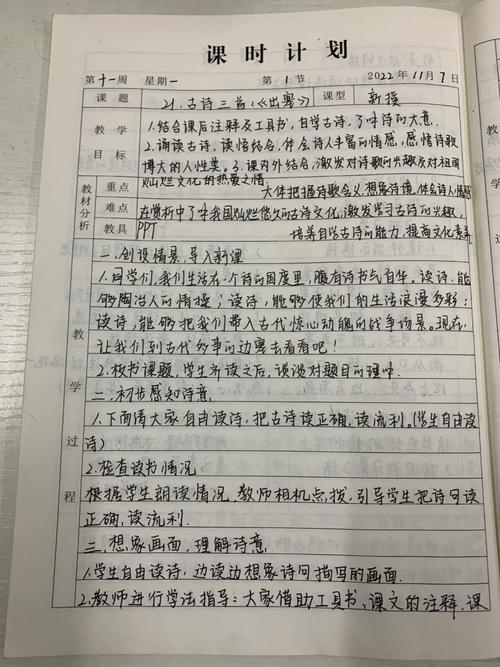 课时计划
第十一周 星期一 第1节 2022年11月7日
课题 21.古诗三首:《出塞》 课型 新授
教学目标 1.结合课后注释及工具书,自学古诗,了解诗的大意.
2.诵读古诗,读悟结合,体会诗人丰富的情感,感悟诗歌
博大的人性美。3.课内外结合,激发对诗歌的兴趣及对祖国
灿烂文化的热爱之情.
教材分析 重点 大体把握诗歌含义,想象诗境,体会诗人情感
难点 在赏析中了解我国灿烂悠久的古诗文化,激发学习古诗的兴趣,
教具 PPT 培养自学古诗的能力,提高文化素养
教学过程
一、创设情景,导入新课
1.同学们,我们生活在一个诗的国度里,腹有诗书气自华。读诗,能
够陶冶人的情操;读诗,能够使我们的生活浪漫多彩;
读诗,能够把我们带入古代惊心动魄的战争场景。现在,
让我们到古代多事的边塞去看看吧!
2.板书课题,学生齐读之后,谈谈对题目的理解.
二、初步感知诗意
1.下面请大家自由读诗,把古诗读正确,读流利。(学生自由读
诗)
2.检查读书情况.
根据学生朗读情况,教师相机点拨,引导学生把诗句读
正确,读流利.
三、想象画面,理解诗意
1.学生自由读诗,边读边想象诗句描写的画面.
2.教师进行学法指导:大家借助工具书,课文的注释,课